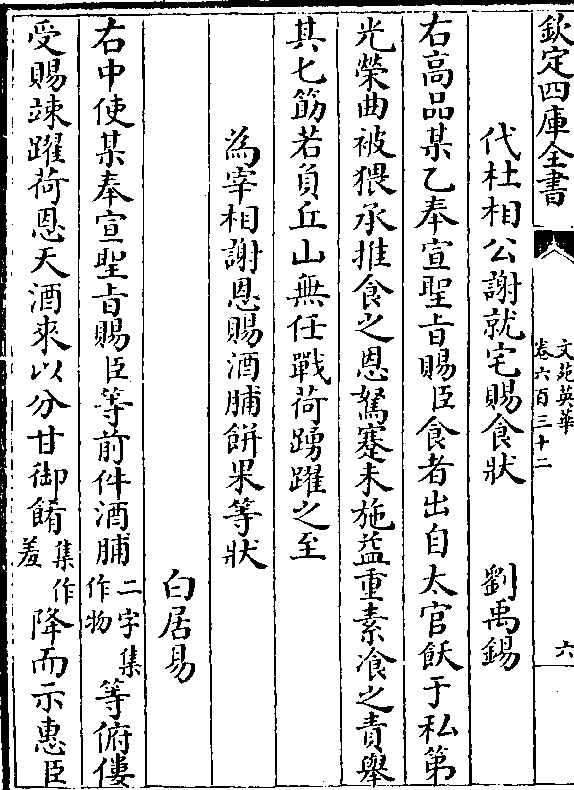 欽定四庫全書
文苑英華
卷六百三十二
六
代杜相公謝就宅賜食狀 劉禹錫
右高品某乙奉宣聖旨賜臣食者出自太官飫于私第
光榮曲被猥承推食之恩駑蹇未施益重素飡之責舉
其七筯若負丘山無任戰荷踴躍之至
為宰相謝恩賜酒脯餅果等狀
白居易
右中使某奉宣聖旨賜臣等前件酒脯二字集作物等俯僂
受賜竦躍荷恩天酒來以分甘御餚集作羞降而示惠臣